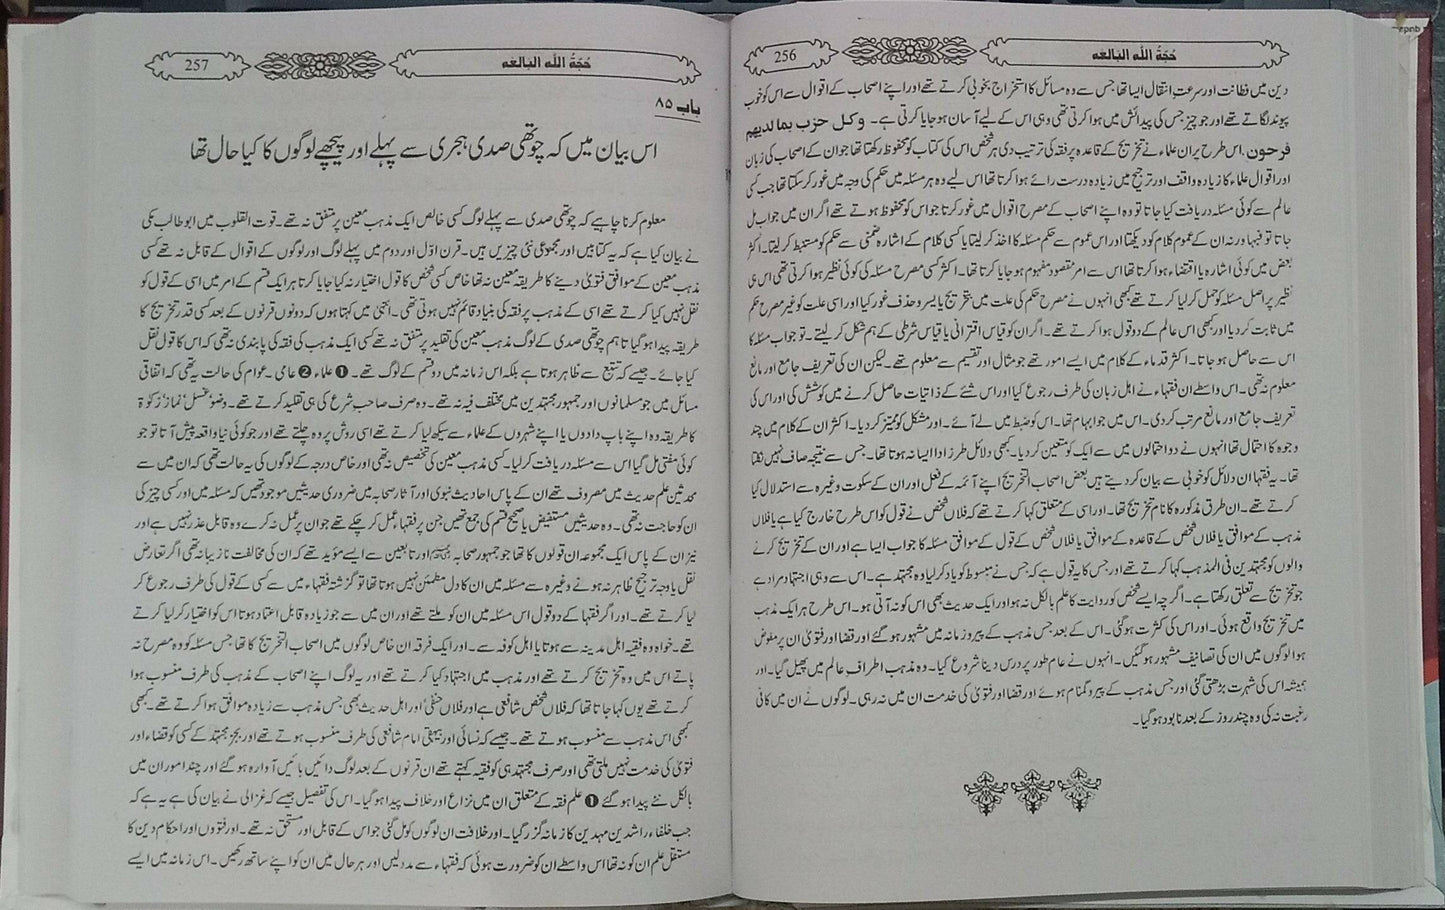 256
حُجَّةُ اللّٰہ البالغہ
دین میں فطانت اور سرعت انتقال ایسا تھا جس سے وہ مسائل کا استخراج بخوبی کرتے تھے اور اپنے اصحاب کے اقوال سے اس کو خوب
پیوند لگاتے تھے اور جو چیز جس کی پیدائش میں ہوا کرتی تھی وہی اس کے لیے آسان ہو جایا کرتی ہے۔ وکل حزب بما لدیھم
فرحون. اس طرح پر ان علماء نے تخریج کے قاعدہ پر فقہ کی ترتیب دی ہر شخص اس کی کتاب کو محفوظ رکھتا تھا جو ان کے اصحاب کی زبان
اور اقوال علماء کا زیادہ واقف اور ترجیح میں زیادہ درست رائے ہوا کرتا تھا اس لیے وہ ہر مسئلہ میں حکم کی وجہ میں غور کر سکتا تھا جب کسی
عالم سے کوئی مسئلہ دریافت کیا جاتا تو وہ اپنے اصحاب کے مصرح اقوال میں غور کرتا جو اس کو محفوظ ہوتے تھے اگر ان میں جواب مل
جاتا تو فبہا ورنہ ان کے عموم کلام کو دیکھتا اور اس عموم سے حکم مسئلہ کا اخذ کر لیتا یا کسی کلام کے اشارہ ضمنی سے حکم کو مستنبط کر لیتا۔ اکثر
بعض میں کوئی اشارہ یا اقتضاء ہوا کرتا تھا اس سے امر مقصود مفہوم ہو جایا کرتا تھا۔ اکثر کسی مصرح مسئلہ کی کوئی نظیر ہوا کرتی تھی اس ہی
نظیر پر اصل مسئلہ کو حمل کر لیا کرتے تھے کبھی انہوں نے مصرح حکم کی علت میں بتخریج یا یسر و حذف غور کیا اور اسی علت کو غیر مصرح حکم
میں ثابت کر دیا اور کبھی اس عالم کے دو قول ہوا کرتے تھے۔ اگر ان کو قیاس اقترانی یا قیاس شرطی کے ہم شکل کر لیتے۔ تو جواب مسئلہ کا
اس سے حاصل ہو جاتا۔ اکثر قدماء کے کلام میں ایسے امور تھے جو مثال اور تقسیم سے معلوم تھے۔ لیکن ان کی تعریف جامع اور مانع
معلوم نہ تھی۔ اس واسطے ان فقہاء نے اہل زبان کی طرف رجوع کیا اور اس شئے کے ذاتیات حاصل کرنے میں کوشش کی اور اس کی
تعریف جامع اور مانع مرتب کر دی۔ اس میں جو ابہام تھا۔ اس کو ضبط میں لے آئے۔ اور مشکل کو ممیز کر دیا۔ اکثر ان کے کلام میں چند
وجوہ کا احتمال تھا انہوں نے دو احتمالوں میں سے ایک کو متعین کر دیا۔ کبھی دلائل طرز ادا ایسا نہ ہوتا تھا۔ جس سے نتیجہ صاف نہیں نکلتا
تھا۔ یہ فقہا ان دلائل کو خوبی سے بیان کر دیتے ہیں بعض اصحاب التخریج اپنے آئمہ کے فعل اور ان کے سکوت وغیرہ سے استدلال کیا
کرتے تھے۔ ان طرق مذکورہ کا نام تخریج تھا۔ اور اسی کے متعلق کہا کرتے تھے کہ فلاں شخص نے قول کو اس طرح خارج کیا ہے یا فلاں
مذہب کے موافق یا فلاں شخص کے قاعدہ کے موافق یا فلاں شخص کے قول کے موافق مسئلہ کا جواب ایسا ہے اور ان کے تخریج کرنے
والوں کو مجتہدین فی المذہب کہا کرتے تھے اور جس کا یہ قول ہے کہ جس نے مبسوط کو یاد کر لیا وہ مجتہد ہے۔ اس سے وہی اجتہاد مراد ہے
جو تخریج سے تعلق رکھتا ہے۔ اگرچہ ایسے شخص کو روایت کا علم بالکل نہ ہو اور ایک حدیث بھی اس کو نہ آتی ہو۔ اس طرح ہر ایک مذہب
میں تخریج واقع ہوئی۔ اور اس کی کثرت ہو گئی۔ اس کے بعد جس مذہب کے پیرو زمانہ میں مشہور ہو گئے اور قضا اور فتویٰ ان پر مفوض
ہوا لوگوں میں ان کی تصانیف مشہور ہو گئیں۔ انہوں نے عام طور پر درس دینا شروع کیا۔ وہ مذہب اطراف عالم میں پھیل گیا۔ اور
ہمیشہ اس کی شہرت بڑھتی گئی اور جس مذہب کے پیرو گمنام ہوئے اور قضا اور فتویٰ کی خدمت ان میں نہ رہی۔ لوگوں نے ان میں کافی
رغبت نہ کی وہ چند روز کے بعد نابود ہو گیا۔
257
حُجَّةُ اللّٰہ البالغہ
باب ۸۵
اس بیان میں کہ چوتھی صدی ہجری سے پہلے اور پیچھے لوگوں کا کیا حال تھا
معلوم کرنا چاہیے کہ چوتھی صدی سے پہلے لوگ کسی خالص ایک مذہب معین پر متفق نہ تھے۔ قوت القلوب میں ابو طالب مکی
نے بیان کیا ہے کہ یہ کتابیں اور مجموعی نئی چیزیں ہیں۔ قرن اوّل اور دوم میں پہلے لوگ اور لوگوں کے اقوال کے قابل نہ تھے کسی
مذہب معین کے موافق فتویٰ دینے کا طریقہ معین نہ تھا خاص کسی شخص کا قول اختیار نہ کیا جایا کرتا ہر ایک قسم کے امر میں اسی کے قول کو
نقل نہیں کیا کرتے تھے اسی کے مذہب پر فقہ کی بنیاد قائم نہیں ہوتی تھی۔ انتہیٰ میں کہتا ہوں کہ دونوں قرنوں کے بعد کسی قدر تخریج کا
طریقہ پیدا ہو گیا تاہم چوتھی صدی کے لوگ مذہب معین کی تقلید پر متفق نہ تھے کسی ایک مذہب کی فقہ کی پابندی نہ تھی کہ اس کا قول نقل
کیا جائے۔ جیسے کہ تتبع سے ظاہر ہوتا ہے بلکہ اس زمانہ میں دو قسم کے لوگ تھے۔ ❶ علماء ❷ عامی۔ عوام کی حالت یہ تھی کہ اتفاقی
مسائل میں جو مسلمانوں اور جمہور مجتہدین میں مختلف فیہ نہ تھے۔ وہ صرف صاحب شرع کی ہی تقلید کرتے تھے۔ وضو‘ غسل‘ نماز‘ زکوٰۃ
کا طریقہ وہ اپنے باپ دادوں یا اپنے شہروں کے علماء سے سیکھ لیا کرتے تھے اسی روش پر وہ چلتے تھے اور جو کوئی نیا واقعہ پیش آتا تو جو
کوئی مفتی مل گیا اس سے مسئلہ دریافت کر لیا۔ کسی مذہب معین کی تخصیص نہ تھی اور خاص درجہ کے لوگوں کی یہ حالت تھی کہ ان میں سے
محدثین علم حدیث میں مصروف تھے ان کے پاس احادیث نبوی اور آثار صحابہ میں ضروری حدیثیں موجود تھیں کہ مسئلہ میں اور کسی چیز کی
ان کو حاجت نہ تھی۔ وہ حدیثیں مستفیض یا صحیح قسم کی جمع تھیں جن پر فقہا عمل کر چکے تھے جو ان پر عمل نہ کرے وہ قابل عذر نہیں ہے اور
نیز ان کے پاس ایک مجموعہ ان قولوں کا تھا جو جمہور صحابہ اور تابعین سے ایسے مؤید تھے کہ ان کی مخالفت نازیبا نہ تھی اگر تعارض
نقل یا وجہ ترجیح ظاہر نہ ہونے وغیرہ سے مسئلہ میں ان کا دل مطمئن نہیں ہوتا تھا تو گزشتہ فقہاء میں سے کسی کے قول کی طرف رجوع کر
لیا کرتے تھے۔ اور اگر فقہا کے دو قول اس مسئلہ میں ان کو ملتے تھے اور ان میں سے جو زیادہ قابل اعتماد ہوتا اس کو اختیار کر لیا کرتے
تھے۔ خواہ وہ فقیہ اہل مدینہ سے ہوتا یا اہل کوفہ سے۔ اور ایک فرقہ ان خاص لوگوں میں اصحاب التخریج کا تھا جس مسئلہ کو وہ مصرح نہ
پاتے اس میں وہ تخریج کرتے تھے اور مذہب میں اجتہاد کیا کرتے تھے اور یہ لوگ اپنے اصحاب کے مذہب کی طرف منسوب ہوا
کرتے تھے یوں کہا جاتا تھا کہ فلاں شخص شافعی ہے اور فلاں حنفی‘ اور اہل حدیث بھی جس مذہب سے زیادہ موافق ہوا کرتے تھے۔ کبھی
کبھی اس مذہب سے منسوب ہوتے تھے۔ جیسے کہ نسائی اور بیہقی امام شافعی کی طرف منسوب ہوتے تھے اور بجز مجتہد کے کسی کو قضاء اور
فتویٰ کی خدمت نہیں ملتی تھی اور صرف مجتہد ہی کو فقیہ کہتے تھے ان قرنوں کے بعد لوگ دائیں بائیں آوارہ ہو گئے اور چند امور ان میں
بالکل نئے پیدا ہو گئے ❶ علم فقہ کے متعلق ان میں نزاع اور خلاف پیدا ہو گیا۔ اس کی تفصیل جیسے کہ غزالی نے بیان کی ہے یہ ہے کہ
جب خلفاء راشدین مہدین کا زمانہ گزر گیا۔ اور خلافت ان لوگوں کو مل گئی جو اس کے قابل اور مستحق نہ تھے۔ اور فتوؤں اور احکام دین کا
مستقل علم ان کو نہ تھا اس واسطے ان کو ضرورت ہوئی کہ فقہاء سے مدد لیں اور ہر حال میں ان کو اپنے ساتھ رکھیں۔ اس زمانہ میں ایسے